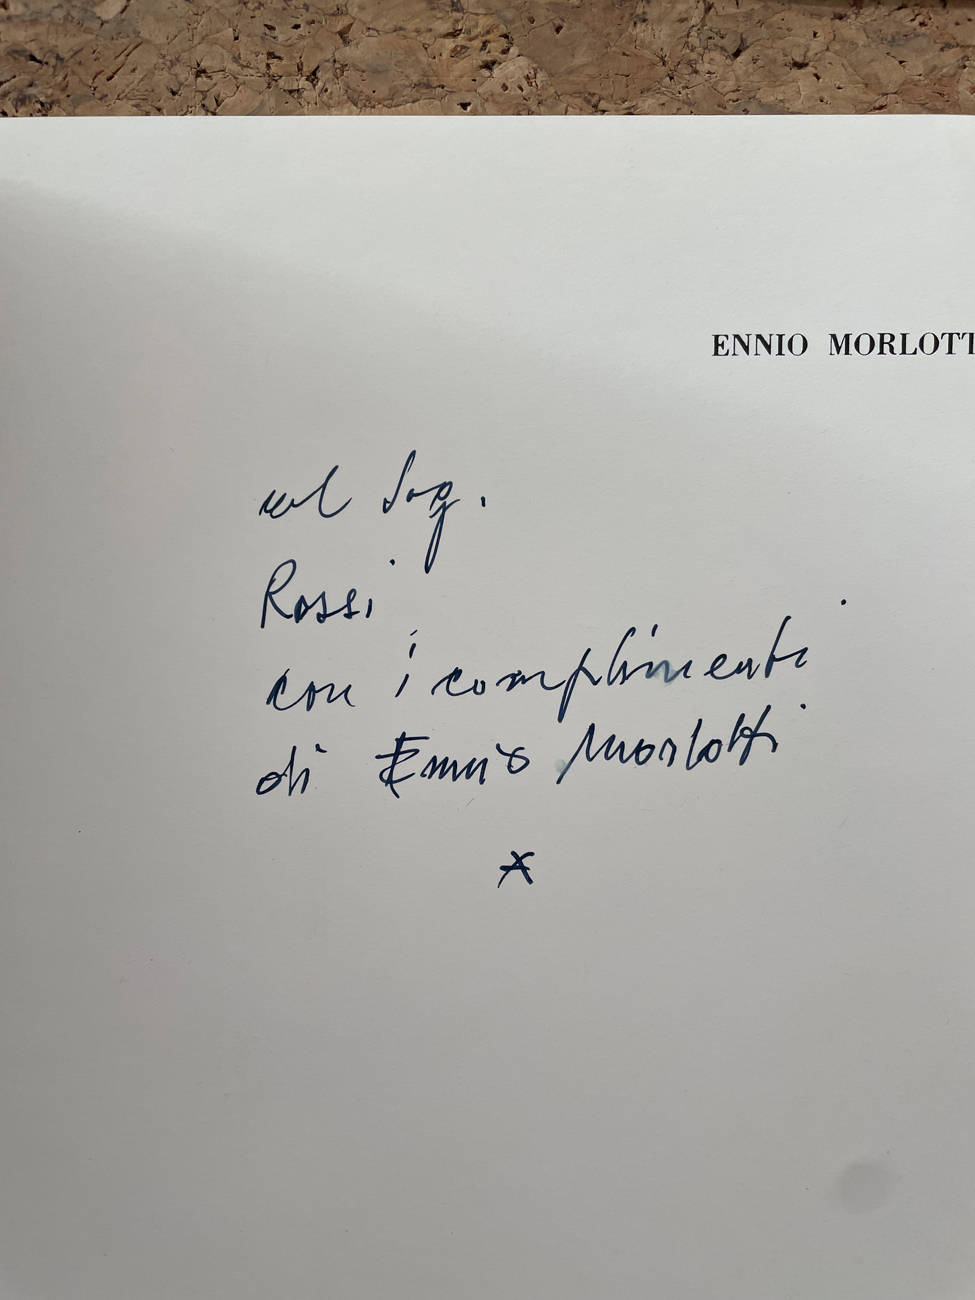 ENNIO MORLOTT
al Sig.
Rossi
con i complimenti
di Ennio Morlotti